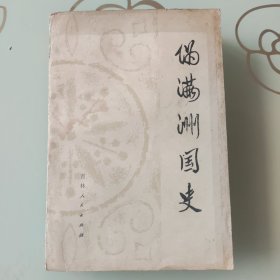 伪满洲国史
吉林人民出版社